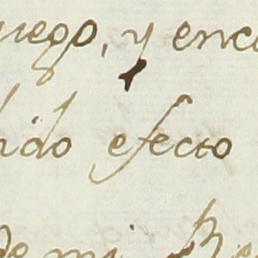 uego, y enca
ido efecto
de mi Re